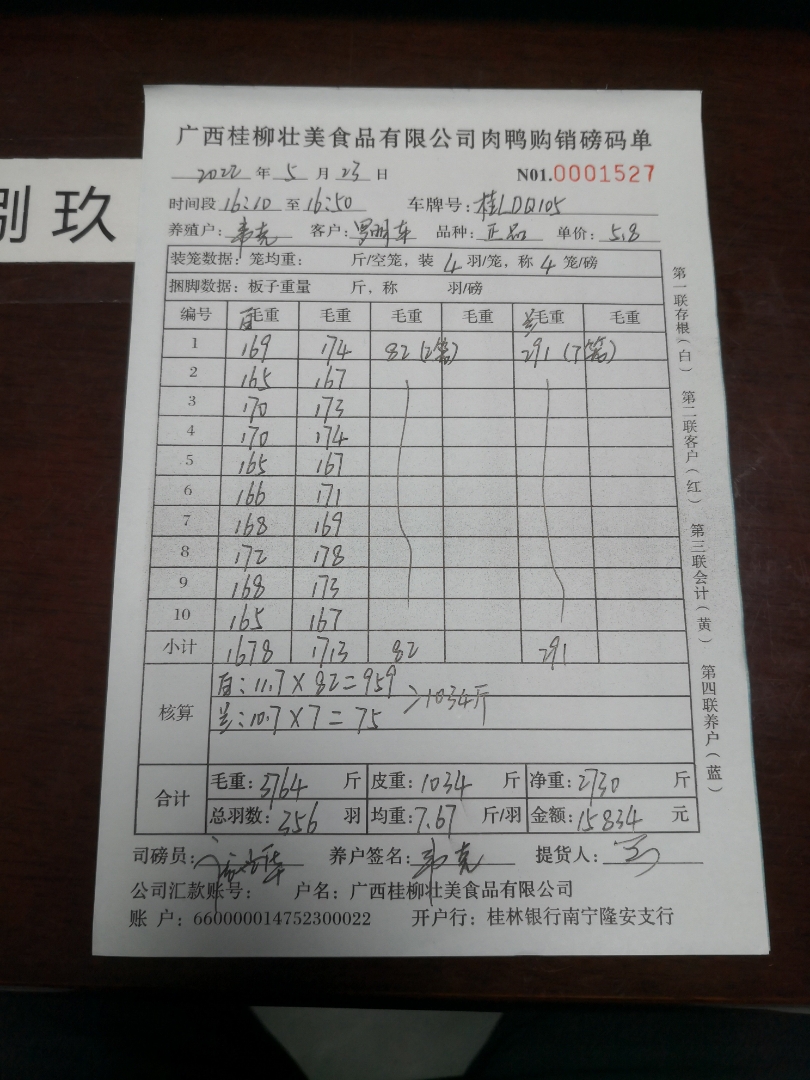 广西桂柳壮美食品有限公司肉鸭购销磅码单
2022 年 5 月 23 日 N01.0001527
捌玖
时间段 16:10 至 16:50 车牌号: 桂LDQ105
养殖户: 韦克 客户: 罗明车 品种: 正品 单价: 5.8
装笼数据: 笼均重: 斤/空笼, 装 4 羽/笼, 称 4 笼/磅
捆脚数据: 板子重量 斤, 称 羽/磅
编号 白毛重 毛重 毛重 毛重 毛重 毛重
1 169 174 82 (2笼) 291 (7笼)
2 165 167
3 170 173
4 170 174
5 165 167
6 166 171
7 168 169
8 172 178
9 168 173
10 165 167
小计 1678 1713 82 291
核算 白: 11.7 × 82 = 959 >1034斤
: 10.7 × 7 = 75
合计 毛重: 3764 斤 皮重: 1034 斤 净重: 2730 斤
总羽数: 356 羽 均重: 7.67 斤/羽 金额: 15834 元
司磅员: 养户签名: 韦克 提货人:
公司汇款账号: 户名: 广西桂柳壮美食品有限公司
账 户: 660000014752300022 开户行: 桂林银行南宁隆安支行
第一联存根(白) 第二联客户(红) 第三联会计(黄) 第四联养户(蓝)